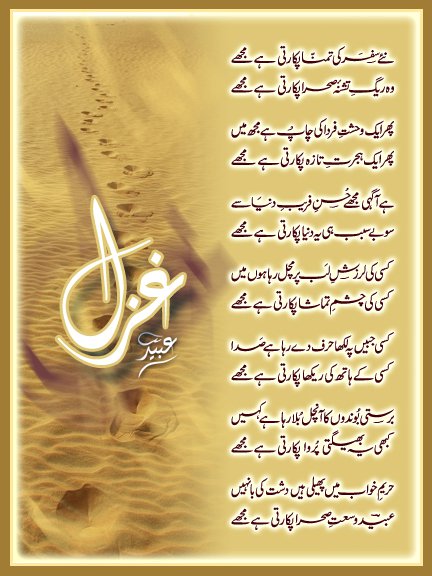 نئے سفر کی تمنا پکارتی ہے مجھے
وہ ریگِ تشنۂ صحرا پکارتی ہے مجھے
پھر ایک وحشتِ فردا کی چاپ ہے مجھ میں
پھر ایک ہجرتِ تازہ پکارتی ہے مجھے
ہے آگہی مجھے حُسنِ فریبِ دنیا سے
سو بے سبب ہی یہ دنیا پکارتی ہے مجھے
کسی کی لرزشِ لب پر مچل رہا ہوں میں
کسی کی چشمِ تماشا پکارتی ہے مجھے
کسی جبیں پہ لکھا حرف دے رہا ہے صدا
کسی کے ہاتھ کی ریکھا پکارتی ہے مجھے
برستی بُوندوں کا آنچل بُلا رہا ہے کہیں
کبھی یہ بھیگتی پُروا پکارتی ہے مجھے
حریمِ خواب میں پھیلی ہیں دشت کی بانہیں
عبید وسعتِ صحرا پکارتی ہے مجھے
غزل
عبید